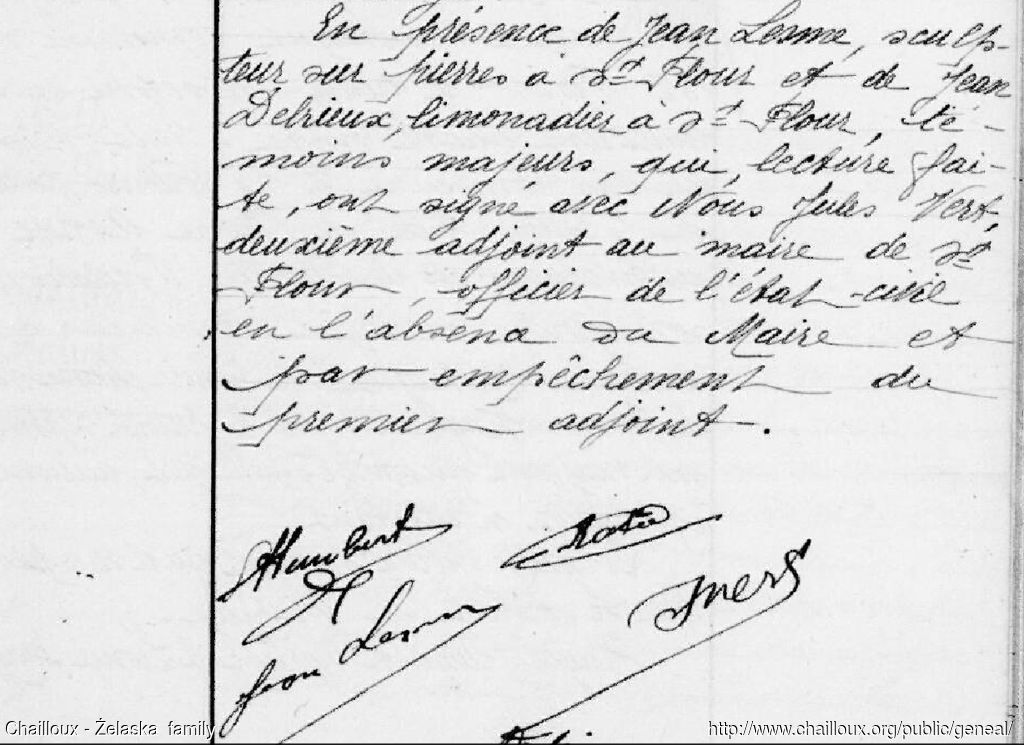 En présence de Jean Lesme, sculp-
teur sur pierres à St Flour et de Jean
Delrieux, limonadier à St-Flour, té-
moins majeurs, qui, lecture fai-
te, ont signé avec Nous Jules Vert,
deuxième adjoint au maire de St
Flour, officier de l'état-civil
en l'absence du Maire et
par empêchement du
premier adjoint.
Humbert
Jean Lesme
JVert
Chailloux - Żelaska family
http://www.chailloux.org/public/geneal/